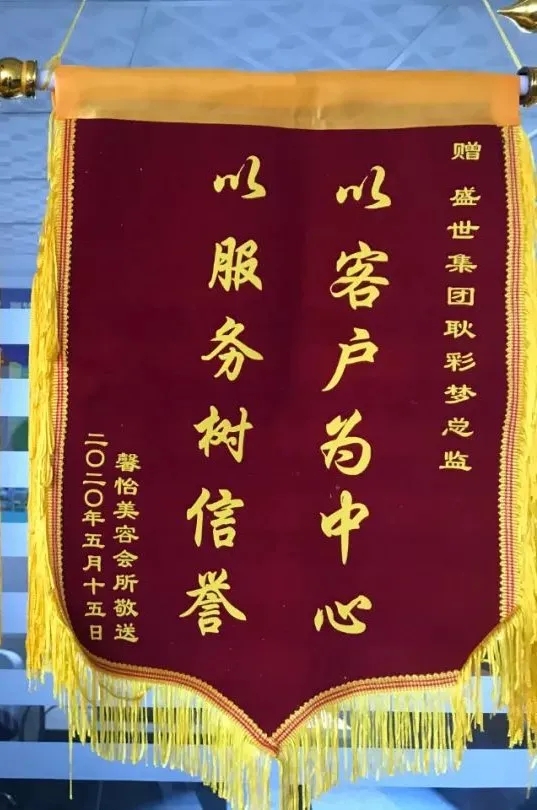 赠 盛世集团耿彩梦总监
以客户为中心
以服务树信誉
馨怡美容会所敬送
二〇二〇年五月十五日